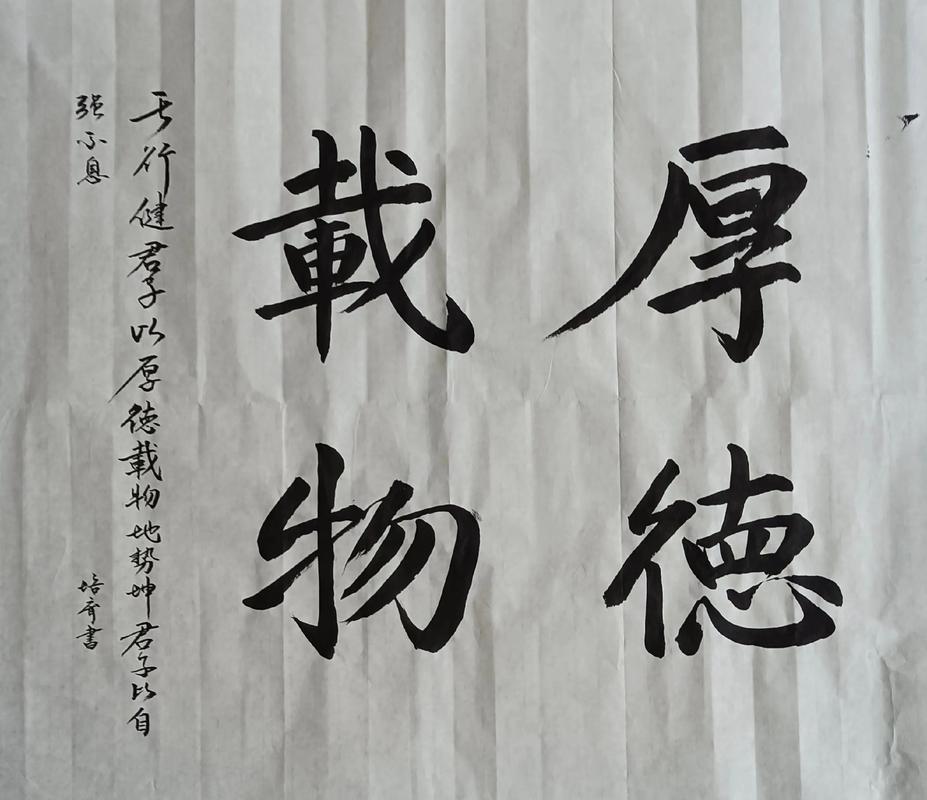 厚德
載物
天行健君子以厚德載物地勢坤君子以自
强不息
培齊書